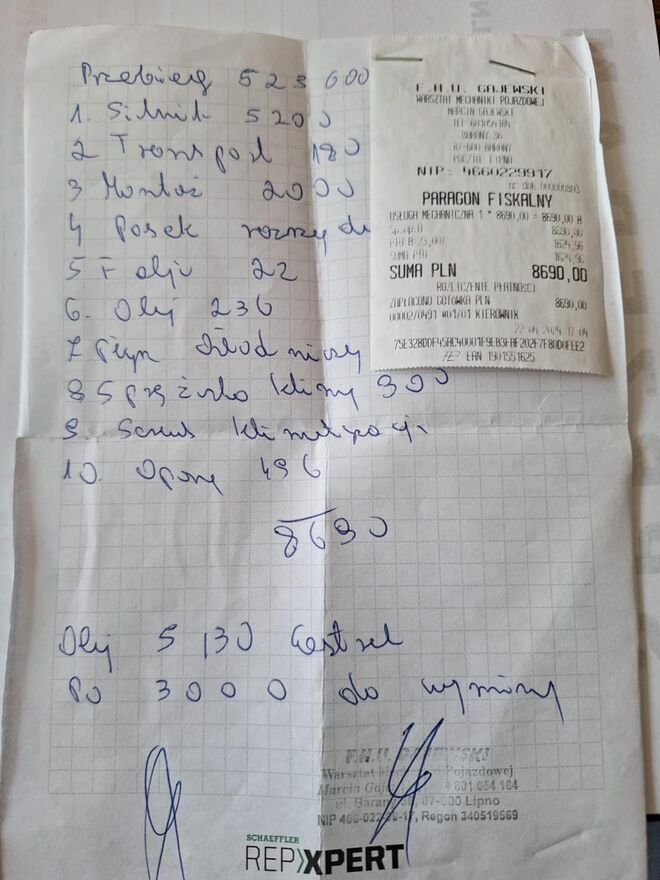 Przebieg 523 600
1. Silnik 5200
2 Transport 180
3 Montaż 2000
4 Pasek rozrządu
5 F oleju 22
6. Olej 236
7 Płyn chłodniczy
8 Sprężarka klimy 300
9. Serwis klimatyzacji
10. Opony 496
8690
Olej 5 130 Castrol
Po 3000 do wymiany
F.H.U. GAJEWSKI
WARSZTAT MECHANIKI POJAZDOWEJ
MARCIN GAJEWSKI
BARANY 36
87-600 BARANY
POCZTA LIPNO
NIP: 4660229917
nr dok.
PARAGON FISKALNY
USŁUGA MECHANICZNA 1 * 8690,00 = 8690,00 A
Sp.op.A 8690,00
PTU A 23,00% 1624,96
SUMA PTU 1624,96
SUMA PLN 8690,00
ROZLICZENIE PŁATNOŚCI
ZAPŁACONO GOTÓWKA PLN 8690,00
00002/0491 #01/01 KIEROWNIK
22-04-2024 17:04
EAN 1901551625
F.H.U. GAJEWSKI
Warsztat Mechaniki Pojazdowej
Marcin
ul. Barany 36, 87-600 Lipno
Regon 340519569
SCHAEFFLER
REPXPERT